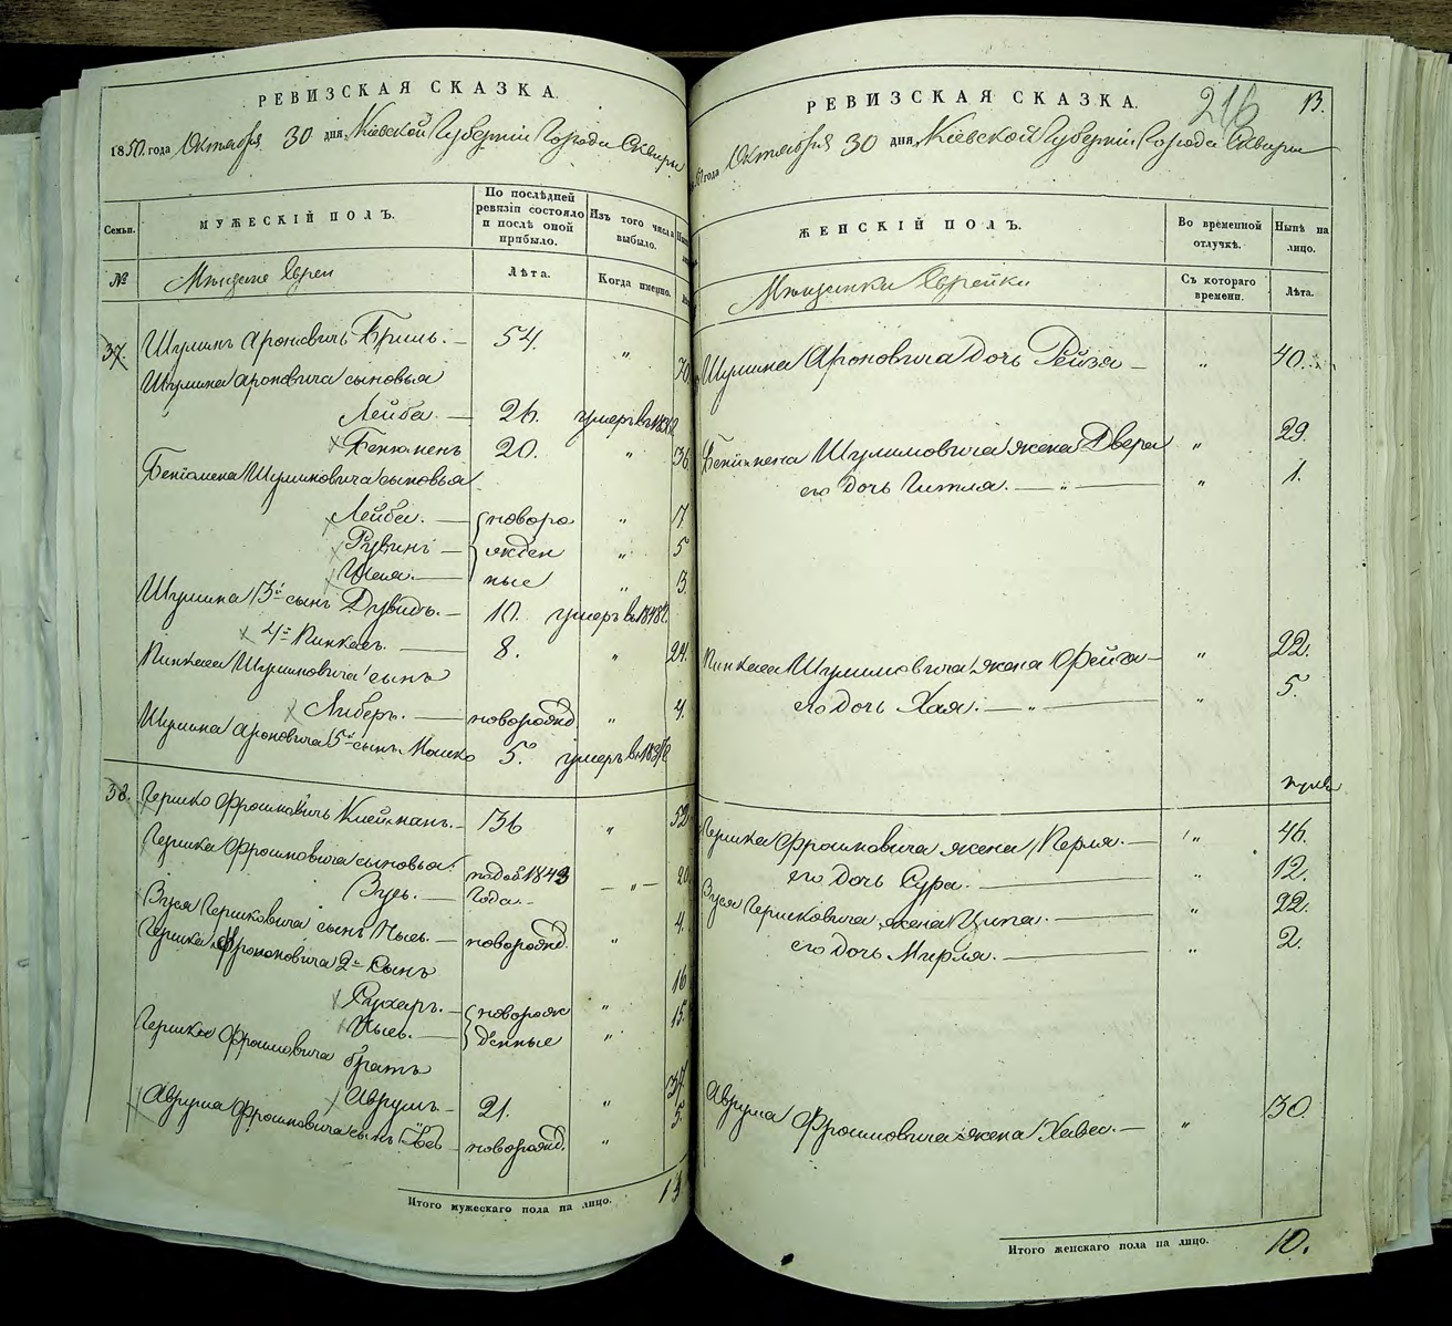 РЕВИЗСКАЯ СКАЗКА.
1850 года Октября 30 дня, Кіевской Губерніи Города Сквиры
Семьи.
МУЖЕСКІЙ ПОЛЪ.
По послѣдней ревизіи состояло и послѣ оной прибыло.
Изъ того числа выбыло.
№
Мѣщане Евреи
Лѣта.
Когда именно.
37. Шулимъ Ароновичь Бриль. — 54. " 70
Шулима Ароновича сыновья
Лейба. — 26. умеръ въ 183
Бенюменъ 20. " 36
Беніомена Шулимовича сыновья
Лейба. — новоро " 7
Рувинъ — жден " 5
Шая. — ные " 3
Шулима 3й сынъ Дувидъ. — 10. умеръ въ 1848
4й Пинкасъ. — 8. " 24
Пинкаса Шулимовича сынъ
Либеръ. — новорожд. " 4.
Шулима Ароновича 5й сынъ Мошко 5. умеръ въ 183
38. Гершко Фроимовичь Клейманъ. — 36 " 52
Гершка Фроимовича сыновья
Зусь. — 1843 года. — " — 20
Зуся Гершковича сынъ — новорожд. " 4.
Гершка Фроимовича 2й Сынъ 16
Сухаръ. — новорож "
— денные " 15.
Гершка Фроимовича братъ
Аврумъ. — 21. " 37
Аврума Фроимовича сынъ новорожд. " 5.
Итого мужескаго пола на лицо. 13
216 13.
РЕВИЗСКАЯ СКАЗКА.
года Октября 30 дня, Кіевской Губерніи Города Сквиры
ЖЕНСКІЙ ПОЛЪ.
Во временной отлучкѣ.
Нынѣ на лицо.
Мѣщанки Еврейки
Съ котораго времени.
Лѣта.
Шулима Ароновича дочь Рейза — " 40.
Беніомена Шулимовича жена Двера " 29.
его дочь Гитля. — " — " 1.
Пинкаса Шулимовича жена Фейга — " 22.
его дочь Хая. — " — " 5.
Гершка Фроимовича жена Перля. — " 46.
его дочь Сура. — " 12.
Зуся Гершковича жена Ципа. — " 22.
его дочь Мирля. — " 2.
Аврума Фроимовича жена Хавса. — " 30.
Итого женскаго пола на лицо. 10.